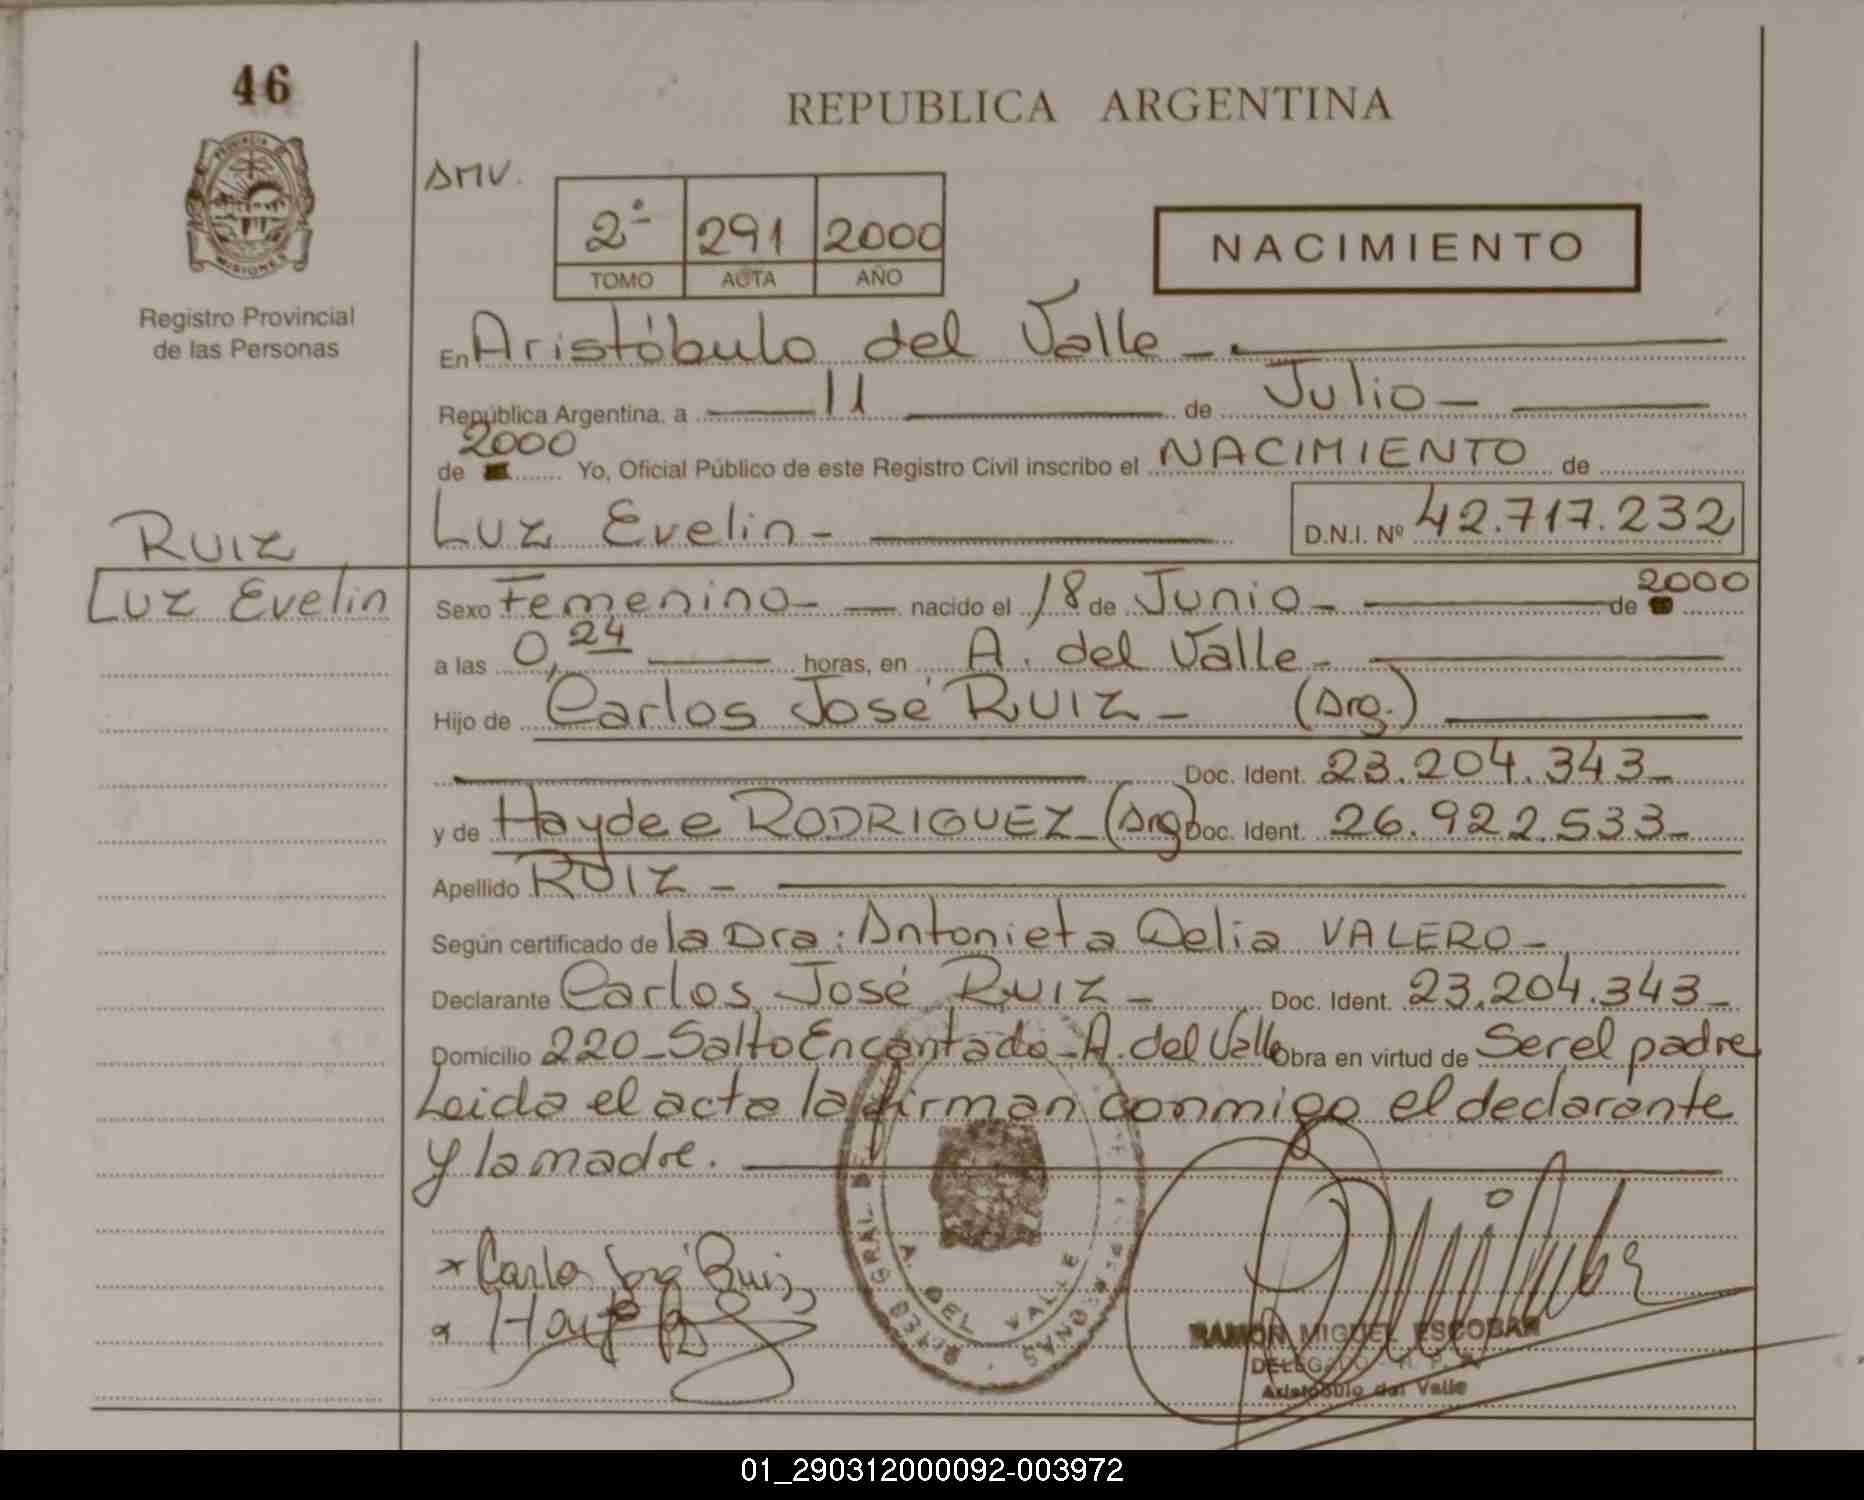 46
REPUBLICA ARGENTINA
PROVINCIA DE
MISIONES
Registro Provincial
de las Personas
SMV.
2º 291 2000
TOMO ACTA AÑO
NACIMIENTO
En Aristóbulo del Valle
República Argentina, a 11 de Julio
2000
de Yo, Oficial Público de este Registro Civil inscribo el NACIMIENTO de
Luz Evelin D.N.I. Nº 42.717.232
RUIZ
Luz Evelin
Sexo Femenino nacido el 18 de Junio de 2000
a las 0,24 horas, en A. del Valle
Hijo de Carlos José RUIZ (Arg.)
Doc. Ident. 23.204.343
y de Haydee RODRIGUEZ (Arg) Doc. Ident. 26.922.533
Apellido RUIZ
Según certificado de la Dra: Antonieta Delia VALERO
Declarante Carlos José RUIZ Doc. Ident. 23.204.343
Domicilio 220 - Salto Encantado - A. del Valle Obra en virtud de Ser el padre
Leida el acta la firman conmigo el declarante
y la madre.
x Carlos José Ruiz
A. DEL VALLE
RAMON MIGUEL ESCOBAR
DELEGADO R. P.
Aristóbulo del Valle
01_290312000092-003972